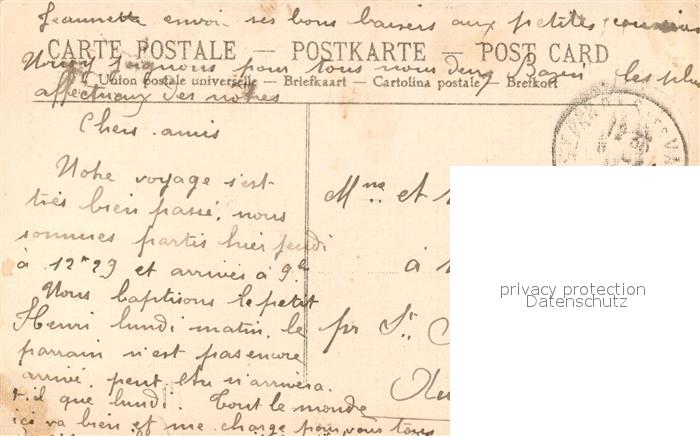 Jeannette envoi ses bons baisers aux petites cousines
CARTE POSTALE — POSTKARTE — POST CARD
Nous y joignons pour tous nous deux les plus
Union postale universelle — Briefkaart — Cartolina postale — Brefkort
affectueux des nôtres
Chers amis
Notre voyage s'est
très bien passé, nous
sommes partis hier jeudi
à 12h29 et arrivés à 9h
Nous baptisons le petit
Henri lundi matin, le
parrain n'est pas encore
arrivé, peut etre n'arrivera
t-il que lundi. Tout le monde
ici va bien et me charge pour vous tous
Mme et
à
pr St
privacy protection
Datenschutz